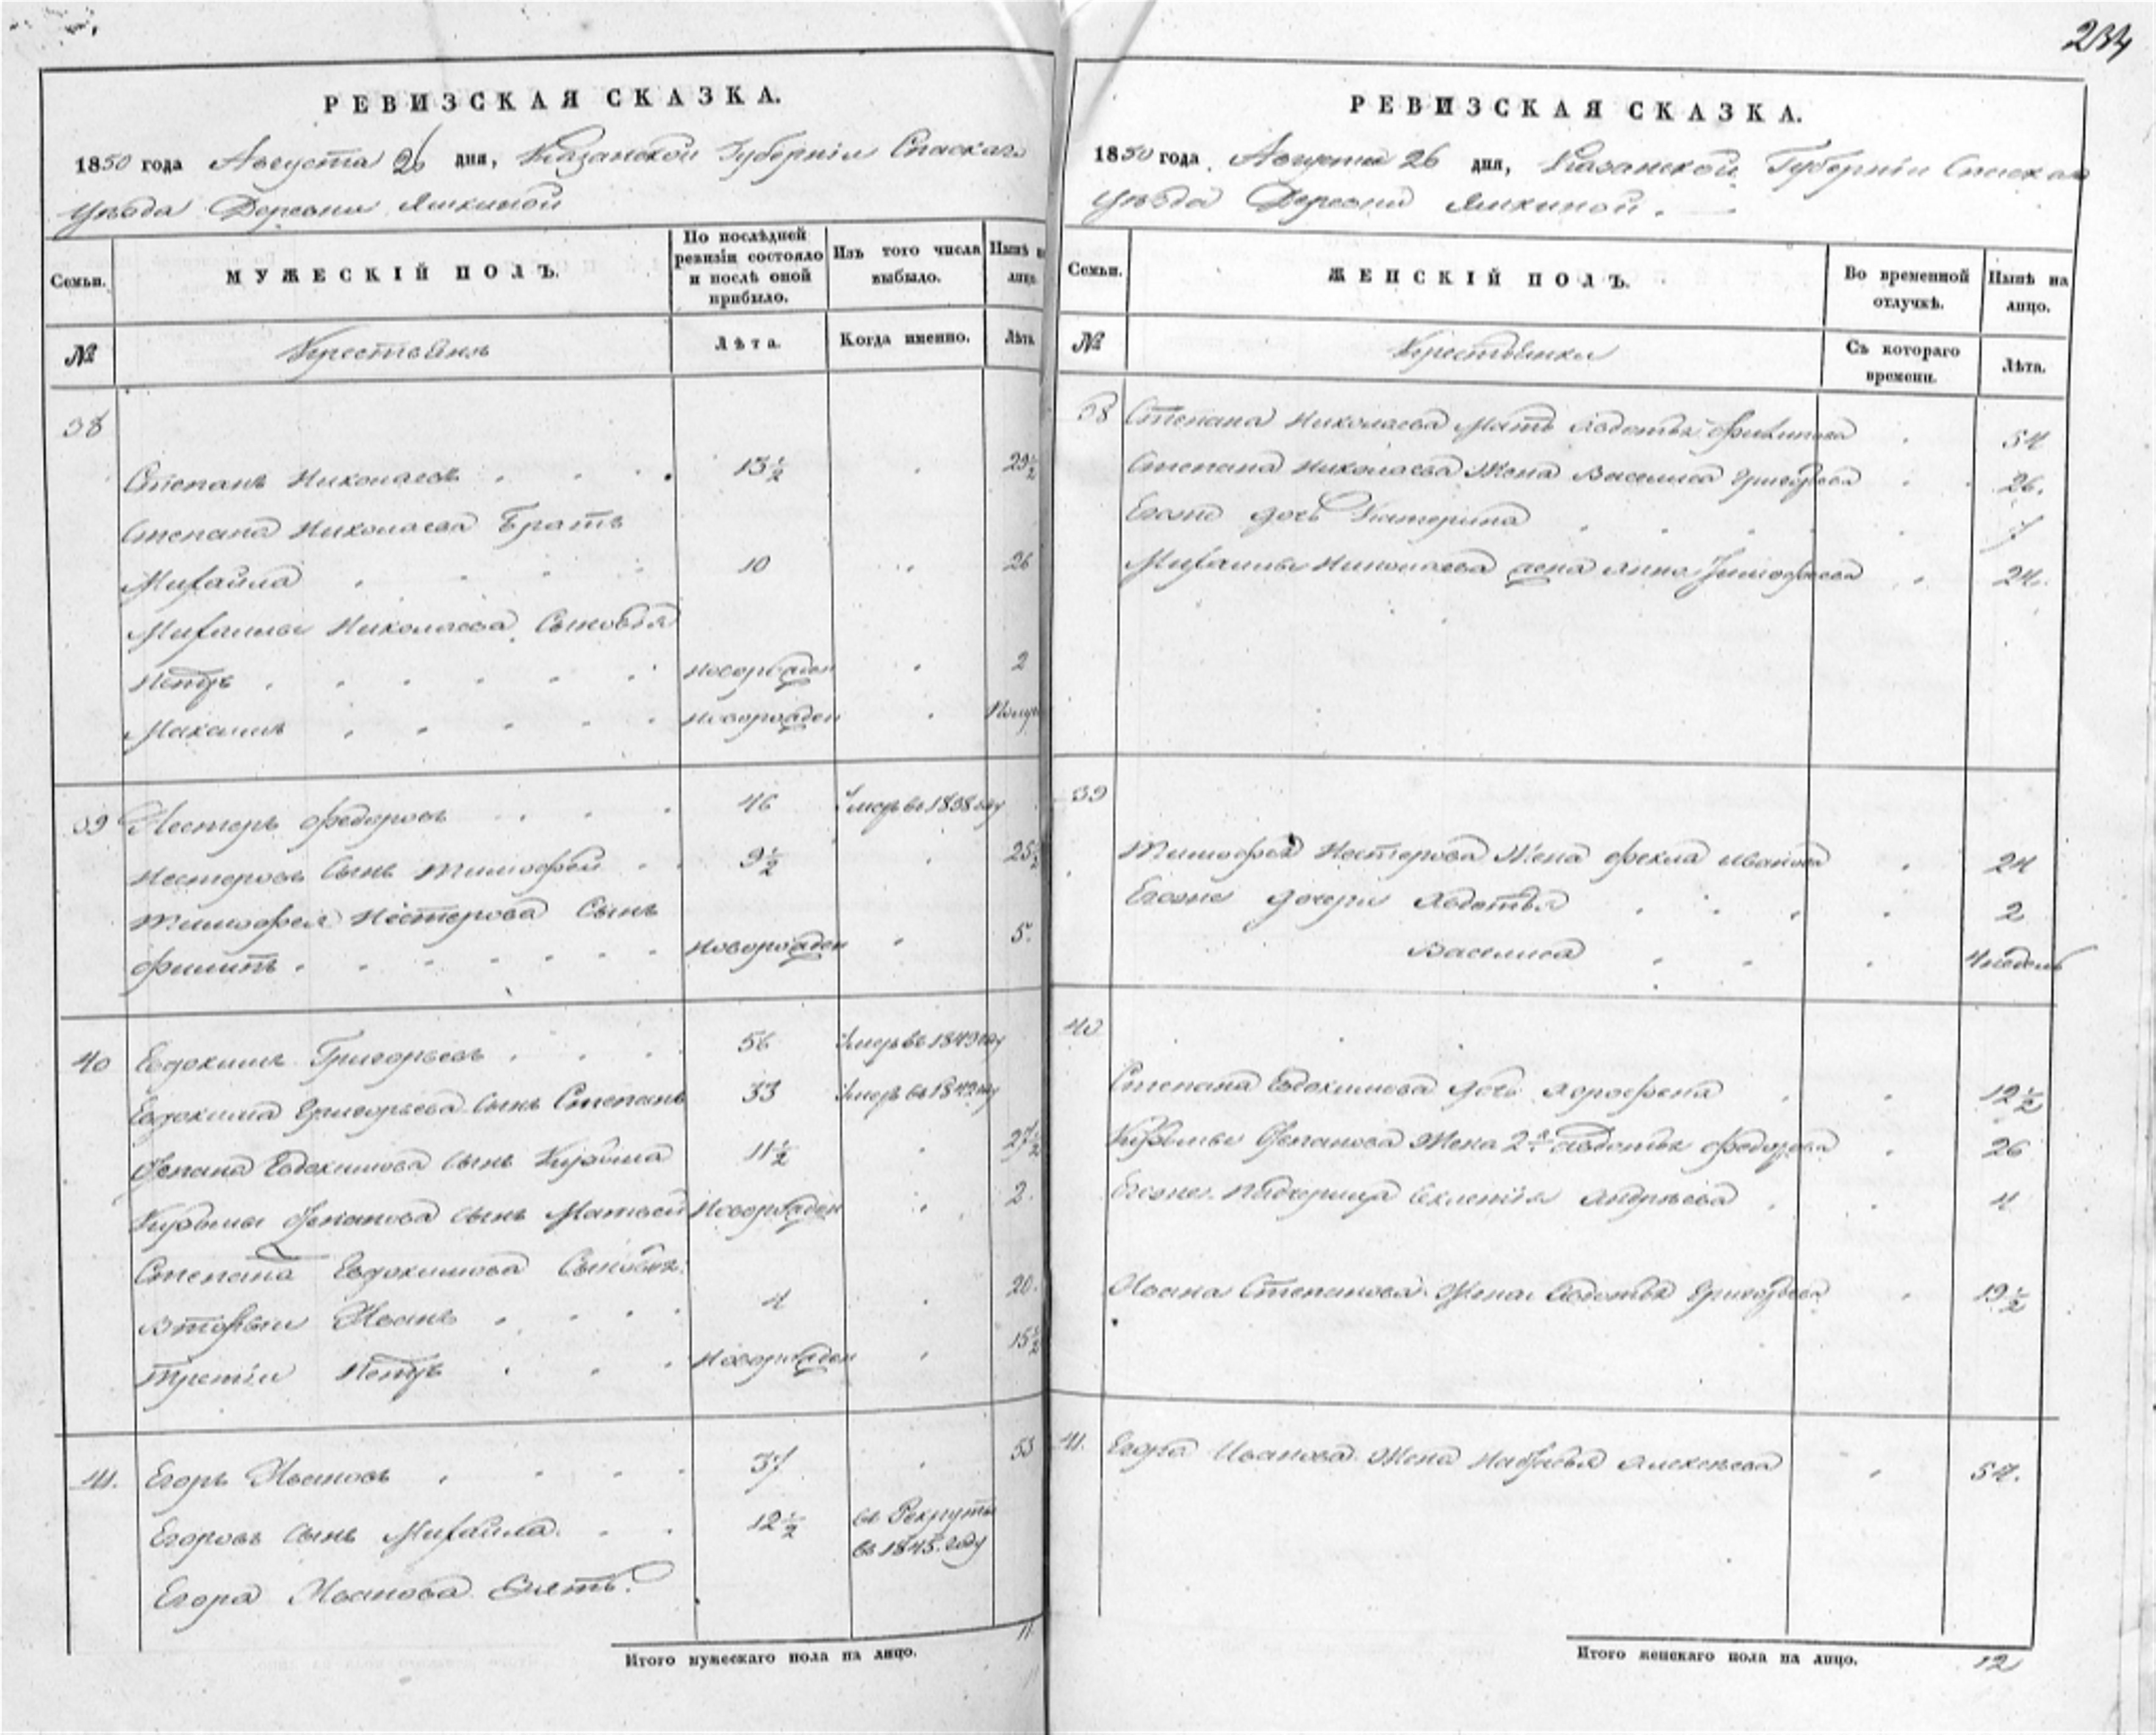 234
РЕВИЗСКАЯ СКАЗКА.
1850 года Августа 26 дня, Казанской Губерніи Спаскаго
уѣзда Деревни Яшкиной
Семьи.
МУЖЕСКІЙ ПОЛЪ.
По послѣдней
ревизіи состояло
и послѣ оной
прибыло.
Изъ того числа
выбыло.
Нынѣ на
лицо.
№
Крестьянъ
Лѣта.
Когда именно.
Лѣта
38
Степанъ Николаевъ 13½ 29½
Степана Николаева Братъ
Михайла 10 26
Михайлы Николаева Сыновья
Петръ Новорожден 2
Максимъ Новорожден
39 Нестеръ Федоровъ 46 Умеръ въ 1838 году
Нестеровъ Сынъ Тимофей 9½ 25½
Тимофея Нестерова Сынъ
Филипъ Новорожден 5.
40 Евдокимъ Григорьевъ 56 Умеръ въ 1849 году
Евдокима Григорьева Сынъ Степанъ 33 Умеръ въ 1842 году
Степана Евдокимова сынъ Кузьма 11½ 27½
Кузьмы Степанова сынъ Матвей Новорожден 2.
Степана Евдокимова Сыновья:
Вторый Иванъ 4 20.
Третіи Петръ Новорожден 15½
41. Егоръ Ивановъ 37 53
Егоровъ Сынъ Михайла 12½ въ Рекруты
въ 1845 году
Егора Иванова Зять.
Итого мужескаго пола на лицо. 11
РЕВИЗСКАЯ СКАЗКА.
1850 года Августа 26 дня, Казанской Губерніи Спаскаго
уѣзда Деревни Яшкиной.
Семьи.
ЖЕНСКІЙ ПОЛЪ.
Во временной
отлучкѣ.
Нынѣ на
лицо.
№
Крестьянки
Съ котораго
времени.
Лѣта.
38 Степана Николаева Мать Авдотья Филипова 54
Степана Николаева Жена Василиса Григорьева 26.
Евоная дочь Катерина
Михаилы Николаева жена Анна Тимофеева 24.
39
Тимофея Нестерова Жена Фекла Иванова 24
Евоные дочери Авдотья 2
Василиса 4 недель
40
Степана Евдокимова дочь Агрофена 12½
Кузьмы Степанова Жена 2я Авдотья Федорова 26
Андреева 4
Ивана Степанова Жена Авдотья Григорьева 19½
41. Егора Иванова Жена Настасья Алексеева 54.
Итого женскаго пола на лицо. 12